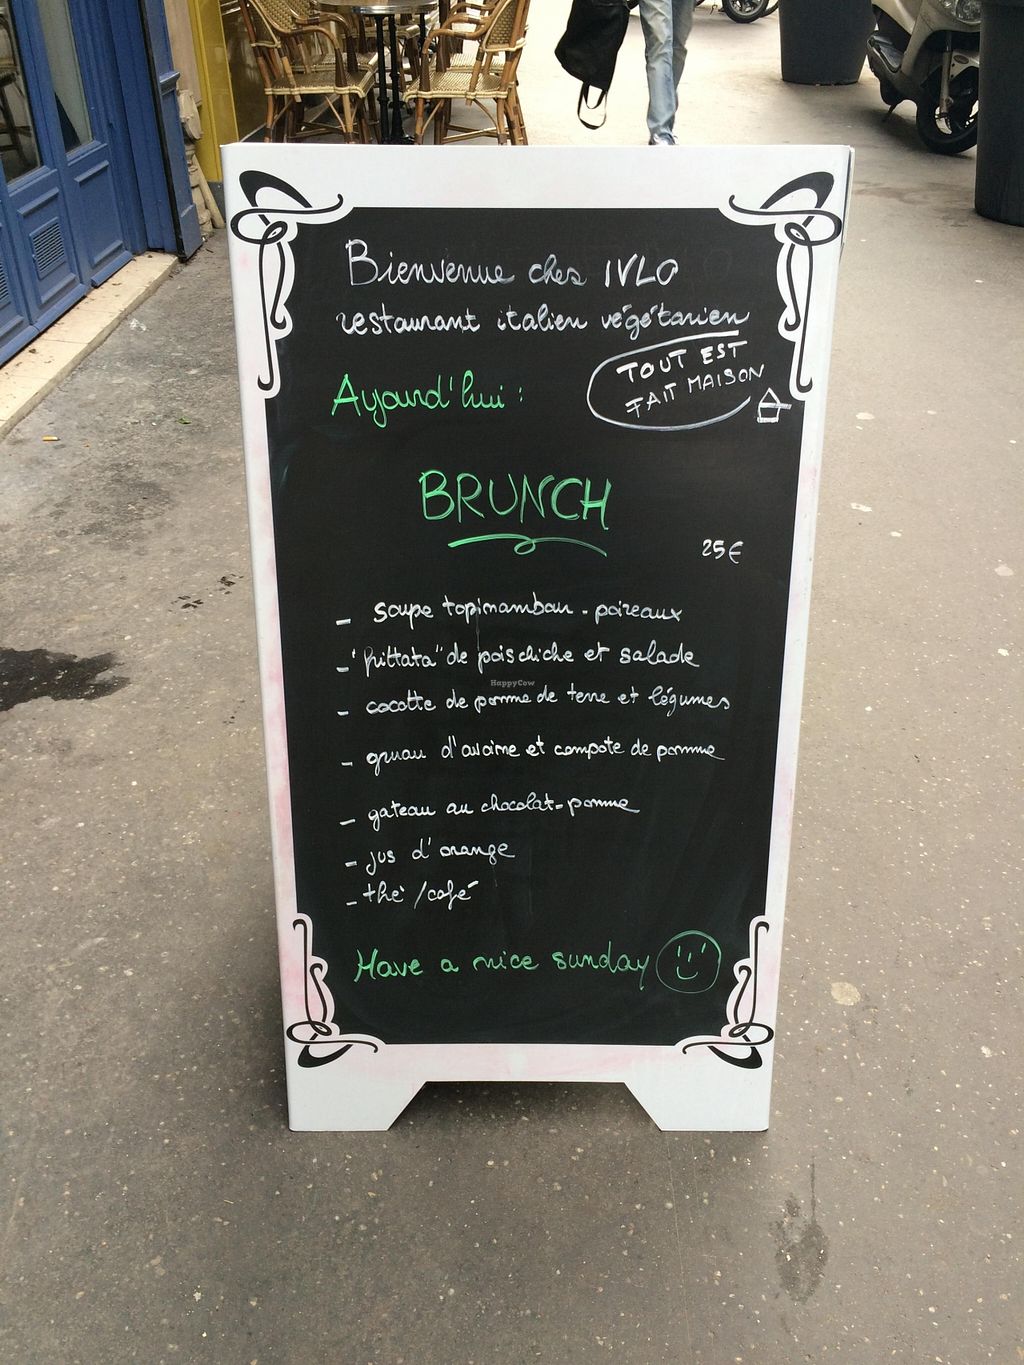 Bienvenue ches IVLO
restaurant italien végétarien
TOUT EST
FAIT MAISON
Aujourd'hui :
BRUNCH
25€
- soupe topinambour - poireaux
- "frittata" de pois chiche et salade
HappyCow
- cocotte de pomme de terre et légumes
- gruau d'avoine et compote de pomme
- gateau au chocolat-pomme
- jus d'orange
- thè /cafè
Have a nice sunday